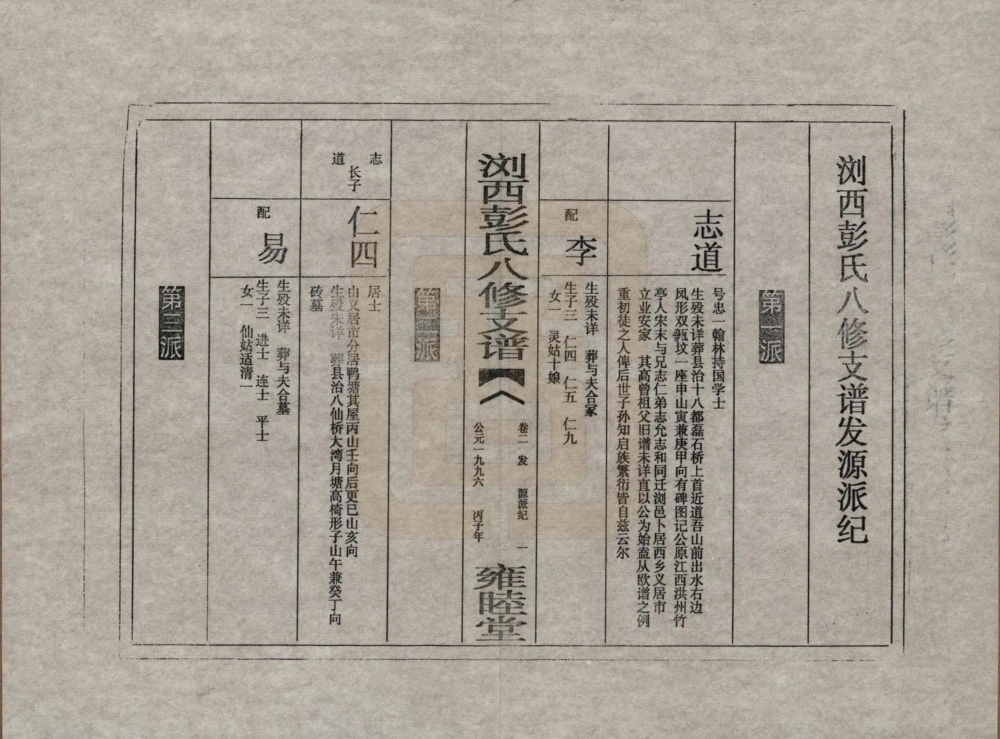 浏西彭氏八修支谱发源派纪
第一派
志道
号忠一翰林持国学士
生殁未详葬县治十八都磊石桥上首近道吾山前出水右边
凤形双甄坟一座申山寅兼庚甲向有碑图记公原江西洪州竹
亭人宋末与兄志仁弟志允志和同迁浏邑卜居西乡义居市
立业安家　其高曾祖父旧谱未详直以公为始盖从欧谱之例
重初徒之人俾后世子孙知启族繁衍皆自兹云尔
配
李
生殁未详　葬与夫合冢
生子三　仁四　仁五　仁九
女一　灵姑十娘
浏西彭氏八修支谱
卷二　发　源派纪　一
公元一九九六　丙子年
雍睦堂
第二派
志
道
长子
仁四
居士
由义居市分居鸭塘其屋丙山壬向后更巳山亥向
生殁未详　葬县治八仙桥大湾月塘高椅形子山午兼癸丁向
砖墓
配
易
生殁未详　葬与夫合墓
生子三　进士　连士　平士
女一　仙姑适清一
第三派